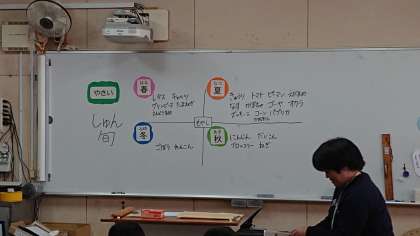 やさい
しゅん
旬
はる
春
レタス キャベツ
グリンピース たまねぎ
なつ
夏
きゅうり トマト ピーマン
なす かぼちゃ ゴーヤ オクラ
コーン パプリカ
もやし
ふゆ
冬
ごぼう れんこん
あき
秋
にんじん だいこん
ブロッコリー ねぎ